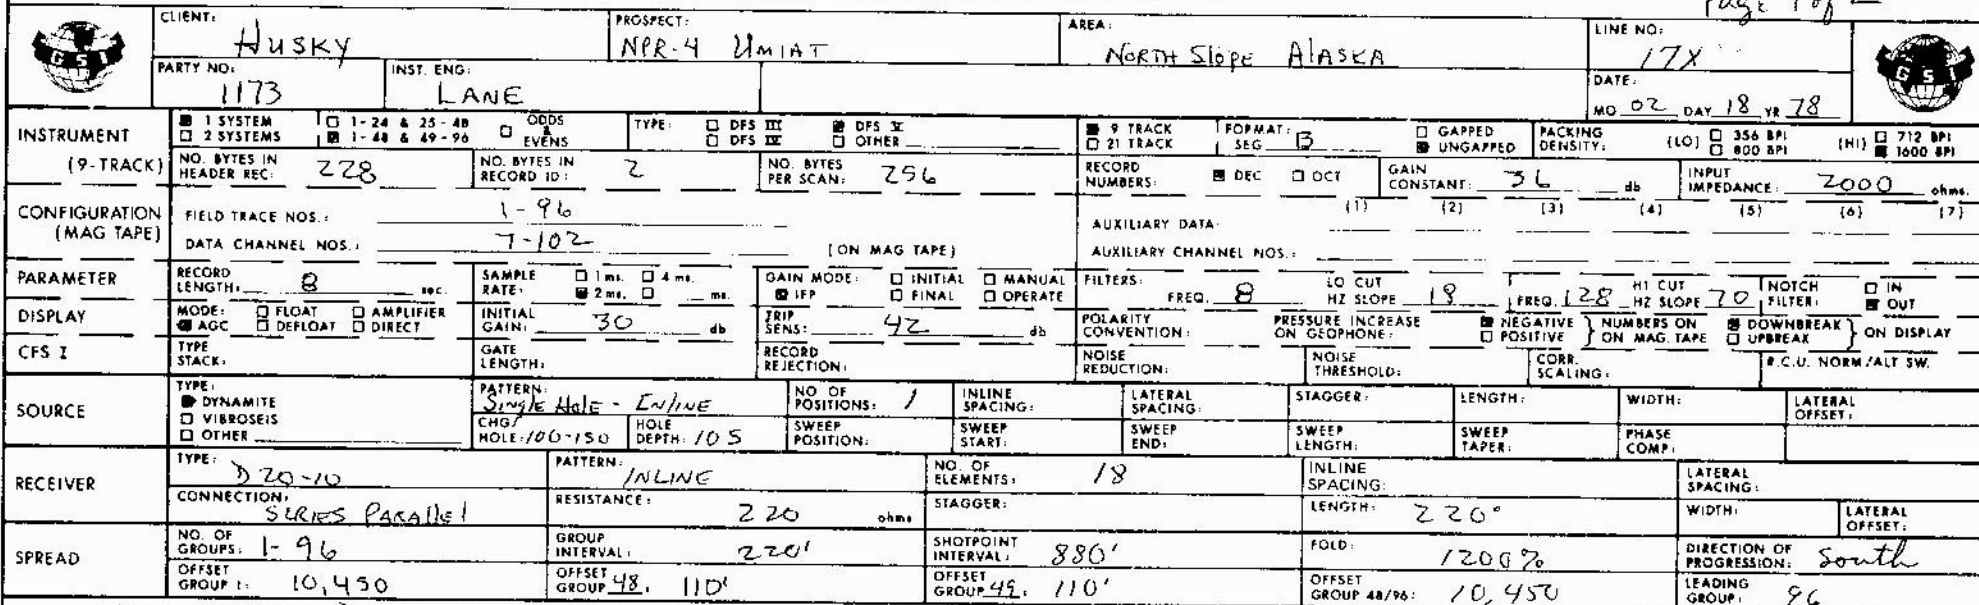 Page 1 of
CLIENT: HUSKY PROSPECT: NPR-4 UMIAT AREA: NORTH Slope AlASKA LINE NO: 17X
GSI GSI
PARTY NO: 1173 INST. ENG: LANE DATE: MO 02 DAY 18 YR 78
INSTRUMENT (9-TRACK)
1 SYSTEM 1-24 & 25-48 ODDS & EVENS TYPE: DFS III DFS V 9 TRACK FORMAT: SEG B GAPPED PACKING DENSITY: (LO) 356 BPI (HI) 712 BPI
2 SYSTEMS 1-48 & 49-96 DFS IV OTHER 21 TRACK UNGAPPED 800 BPI 1600 BPI
NO. BYTES IN HEADER REC: 228 NO. BYTES IN RECORD ID: 2 NO. BYTES PER SCAN: 256 RECORD NUMBERS: DEC OCT GAIN CONSTANT: 36 db INPUT IMPEDANCE: 2000 ohms.
CONFIGURATION (MAG TAPE)
FIELD TRACE NOS.: 1-96 AUXILIARY DATA: (1) (2) (3) (4) (5) (6) (7)
DATA CHANNEL NOS.: 7-102 (ON MAG TAPE) AUXILIARY CHANNEL NOS.:
PARAMETER
RECORD LENGTH: 8 sec. SAMPLE RATE: 1 ms. 4 ms. 2 ms. ms. GAIN MODE: INITIAL MANUAL IFP FINAL OPERATE FILTERS: FREQ. 8 LO CUT HZ SLOPE 18 FREQ. 128 HI CUT HZ SLOPE 70 NOTCH FILTER: IN OUT
DISPLAY
MODE: FLOAT AMPLIFIER AGC DEFLOAT DIRECT INITIAL GAIN: 30 db TRIP SENS: 42 db POLARITY CONVENTION: PRESSURE INCREASE ON GEOPHONE: NEGATIVE POSITIVE NUMBERS ON ON MAG. TAPE DOWNBREAK UPBREAK ON DISPLAY
CFS I
TYPE STACK: GATE LENGTH: RECORD REJECTION: NOISE REDUCTION: NOISE THRESHOLD: CORR. SCALING: R.C.U. NORM/ALT SW.
SOURCE
TYPE: DYNAMITE VIBROSEIS OTHER
PATTERN: Single Hole - Inline NO OF POSITIONS: 1 INLINE SPACING: LATERAL SPACING: STAGGER: LENGTH: WIDTH: LATERAL OFFSET:
CHG/HOLE: 100-150 HOLE DEPTH: 105 SWEEP POSITION: SWEEP START: SWEEP END: SWEEP LENGTH: SWEEP TAPER: PHASE COMP:
RECEIVER
TYPE: D 20-10 PATTERN: INLINE NO. OF ELEMENTS: 18 INLINE SPACING: LATERAL SPACING:
CONNECTION: SERIES PARAllel RESISTANCE: 220 ohms STAGGER: LENGTH: 220° WIDTH: LATERAL OFFSET:
SPREAD
NO. OF GROUPS: 1-96 GROUP INTERVAL: 220' SHOTPOINT INTERVAL: 880' FOLD: 1200% DIRECTION OF PROGRESSION: South
OFFSET GROUP 1: 10,450 OFFSET GROUP 48: 110' OFFSET GROUP 49: 110' OFFSET GROUP 48/96: 10,450 LEADING GROUP: 96